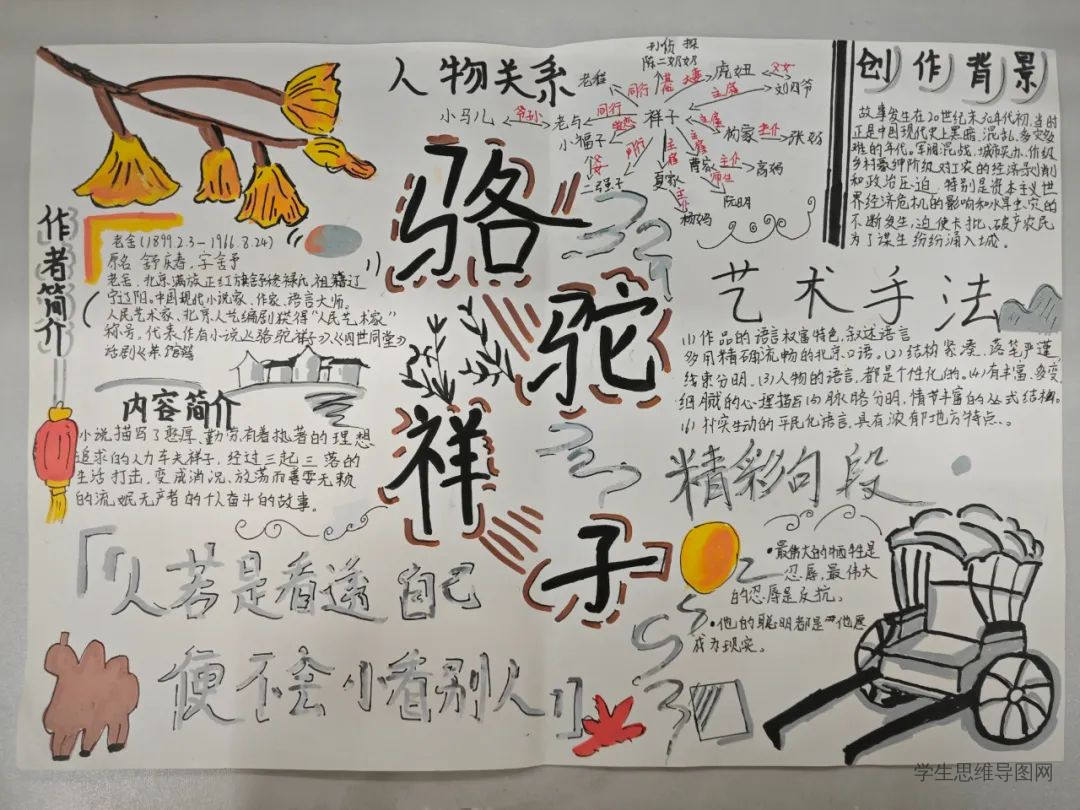 人物关系
刑侦探
陈二奶奶
老程
同行
夫妻
虎妞
父女
刘四爷
小马儿
爷孙
老马
同行
祥子
主雇
杨家
主仆
张妈
小福子
同行
父女
二强子
主雇
夏家
主仆
杨妈
曹家
主仆
高妈
师生
阮明
骆
驼
祥
子
创作背景
故事发生在20世纪末30年代初,当时
正是中国现代史上黑暗,混乱,多灾多
难的年代。军阀混战,城市买办、
乡村豪绅阶级对工农的经济剥削
和政治压迫,特别是资本主义世
界经济危机的影响和水旱虫灾的
不断发生,迫使大批破产农民
为了谋生纷纷涌入城。
作者简介
老舍(1899.2.3-1966.8.24)
原名 舒庆春,字舍予
老舍,北京满族正红旗舒穆禄氏,祖籍辽
宁辽阳。中国现代小说家、作家、语言大师、
人民艺术家、北京人艺编剧,获得"人民艺术家"
称号。代表作有小说《骆驼祥子》、《四世同堂》
话剧《茶馆》
内容简介
小说描写了憨厚、勤劳,有着执著的理想
追求的人力车夫祥子,经过三起三落的
生活打击,变成消沉、放荡而善耍无赖
的流氓无产者的个人奋斗的故事。
艺术手法
(1)作品的语言极富特色,叙述语言
多用精确流畅的北京口语。(2)结构紧凑,落笔严谨,
线索分明。(3)人物的语言,都是个性化的。(4)有丰富、多变
细腻的心理描写向脉胳分明,情节丰富的丛式结构。
(6)朴实生动的平民化语言,具有浓郁地方特点。
精彩句段
•最伟大的牺牲是
忍辱,最伟大
的忍辱是反抗。
•他的聪明都是他愿
成为现实。
「人若是看透自己
便不会小看别人」
学生思维导图网